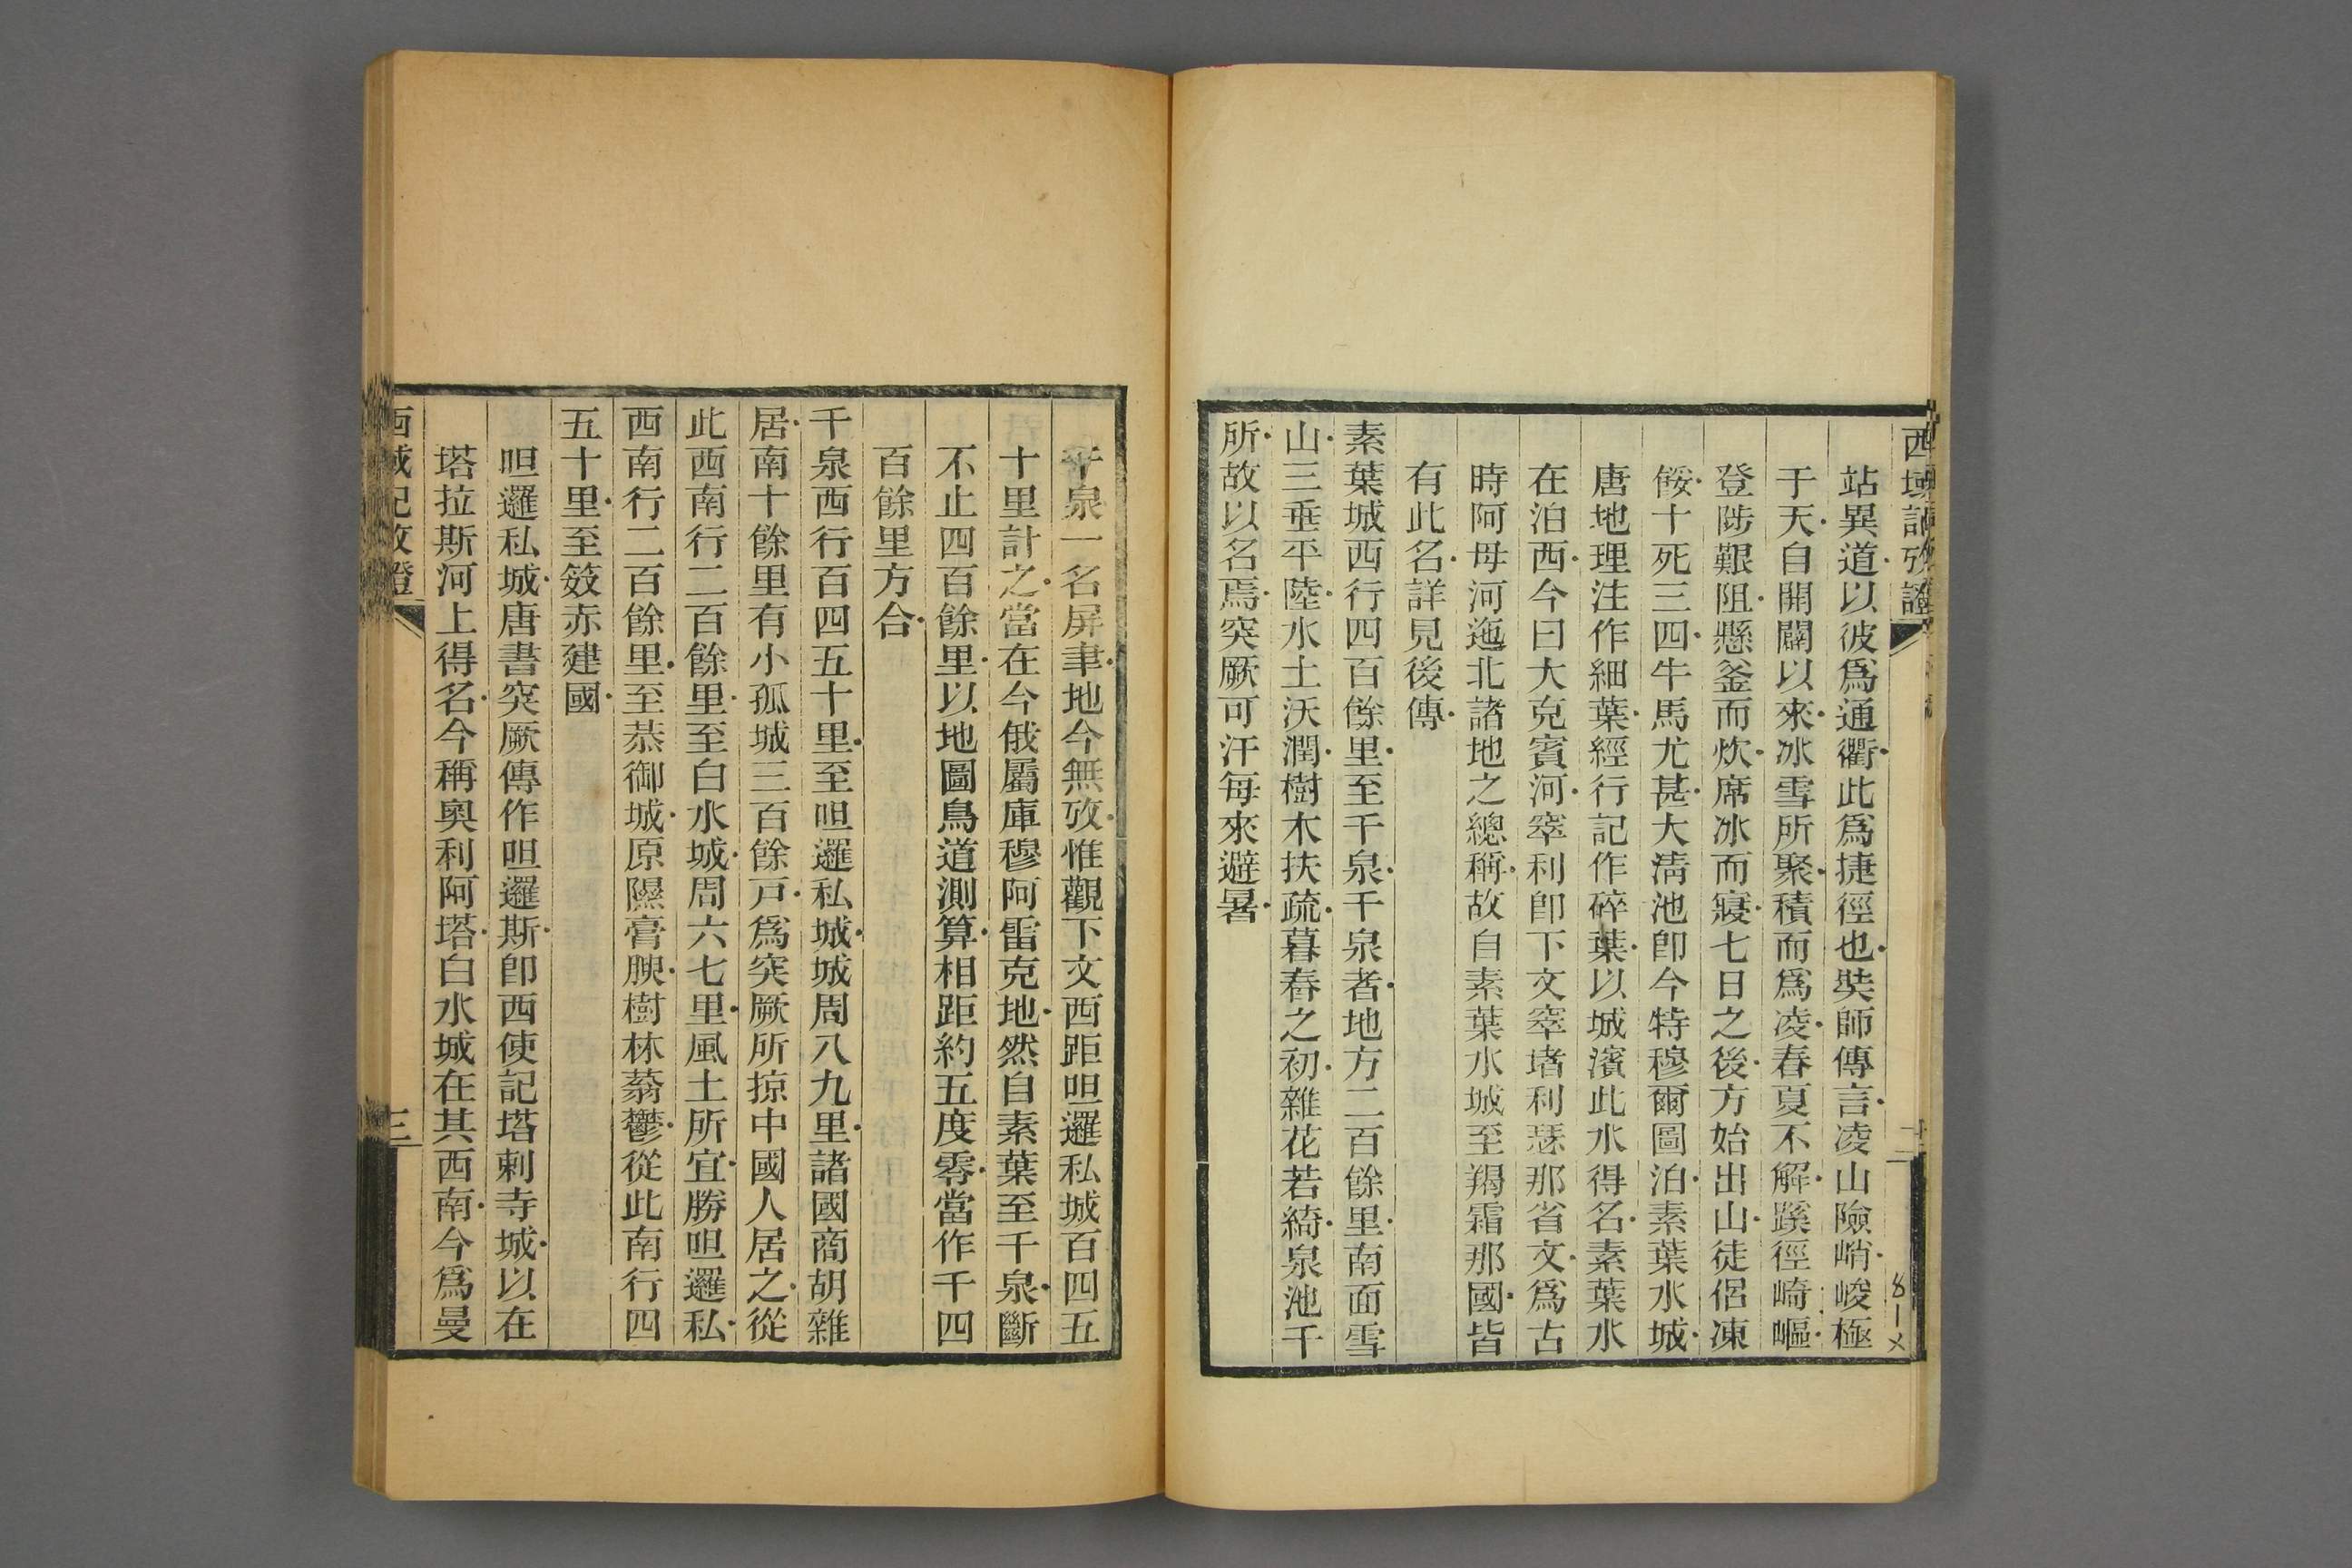 西域記攷證
站異道以彼爲通衢此爲捷徑也奘師傳言凌山險峭峻極
于天自開闢以來冰雪所聚積而爲凌春夏不解蹊徑崎嶇
登陟艱阻懸釜而炊席冰而寢七日之後方始出山徒侶凍
餒十死三四牛馬尤甚大淸池卽今特穆爾圖泊素葉水城
唐地理注作細葉經行記作碎葉以城濱此水得名素葉水
在泊西今曰大克賓河窣利卽下文窣堵利瑟那省文爲古
時阿母河迤北諸地之總稱故自素葉水城至羯霜那國皆
有此名詳見後傳
素葉城西行四百餘里至千泉千泉者地方二百餘里南面雪
山三垂平陸水土沃潤樹木扶疏暮春之初雜花若綺泉池千
所故以名焉突厥可汗每來避暑
千泉一名屏聿地今無攷惟觀下文西距呾邏私城百四五
十里計之當在今俄屬庫穆阿雷克地然自素葉至千泉斷
不止四百餘里以地圖鳥道測算相距約五度零當作千四
百餘里方合
千泉西行百四五十里至呾邏私城城周八九里諸國商胡雜
居南十餘里有小孤城三百餘戸爲突厥所掠中國人居之從
此西南行二百餘里至白水城周六七里風土所宜勝呾邏私
西南行二百餘里至恭御城原隰膏腴樹林蓊鬱從此南行四
五十里至笯赤建國
呾邏私城唐書突厥傳作呾邏斯卽西使記塔剌寺城以在
塔拉斯河上得名今稱奥利阿塔白水城在其西南今爲曼
西域記攷證
三